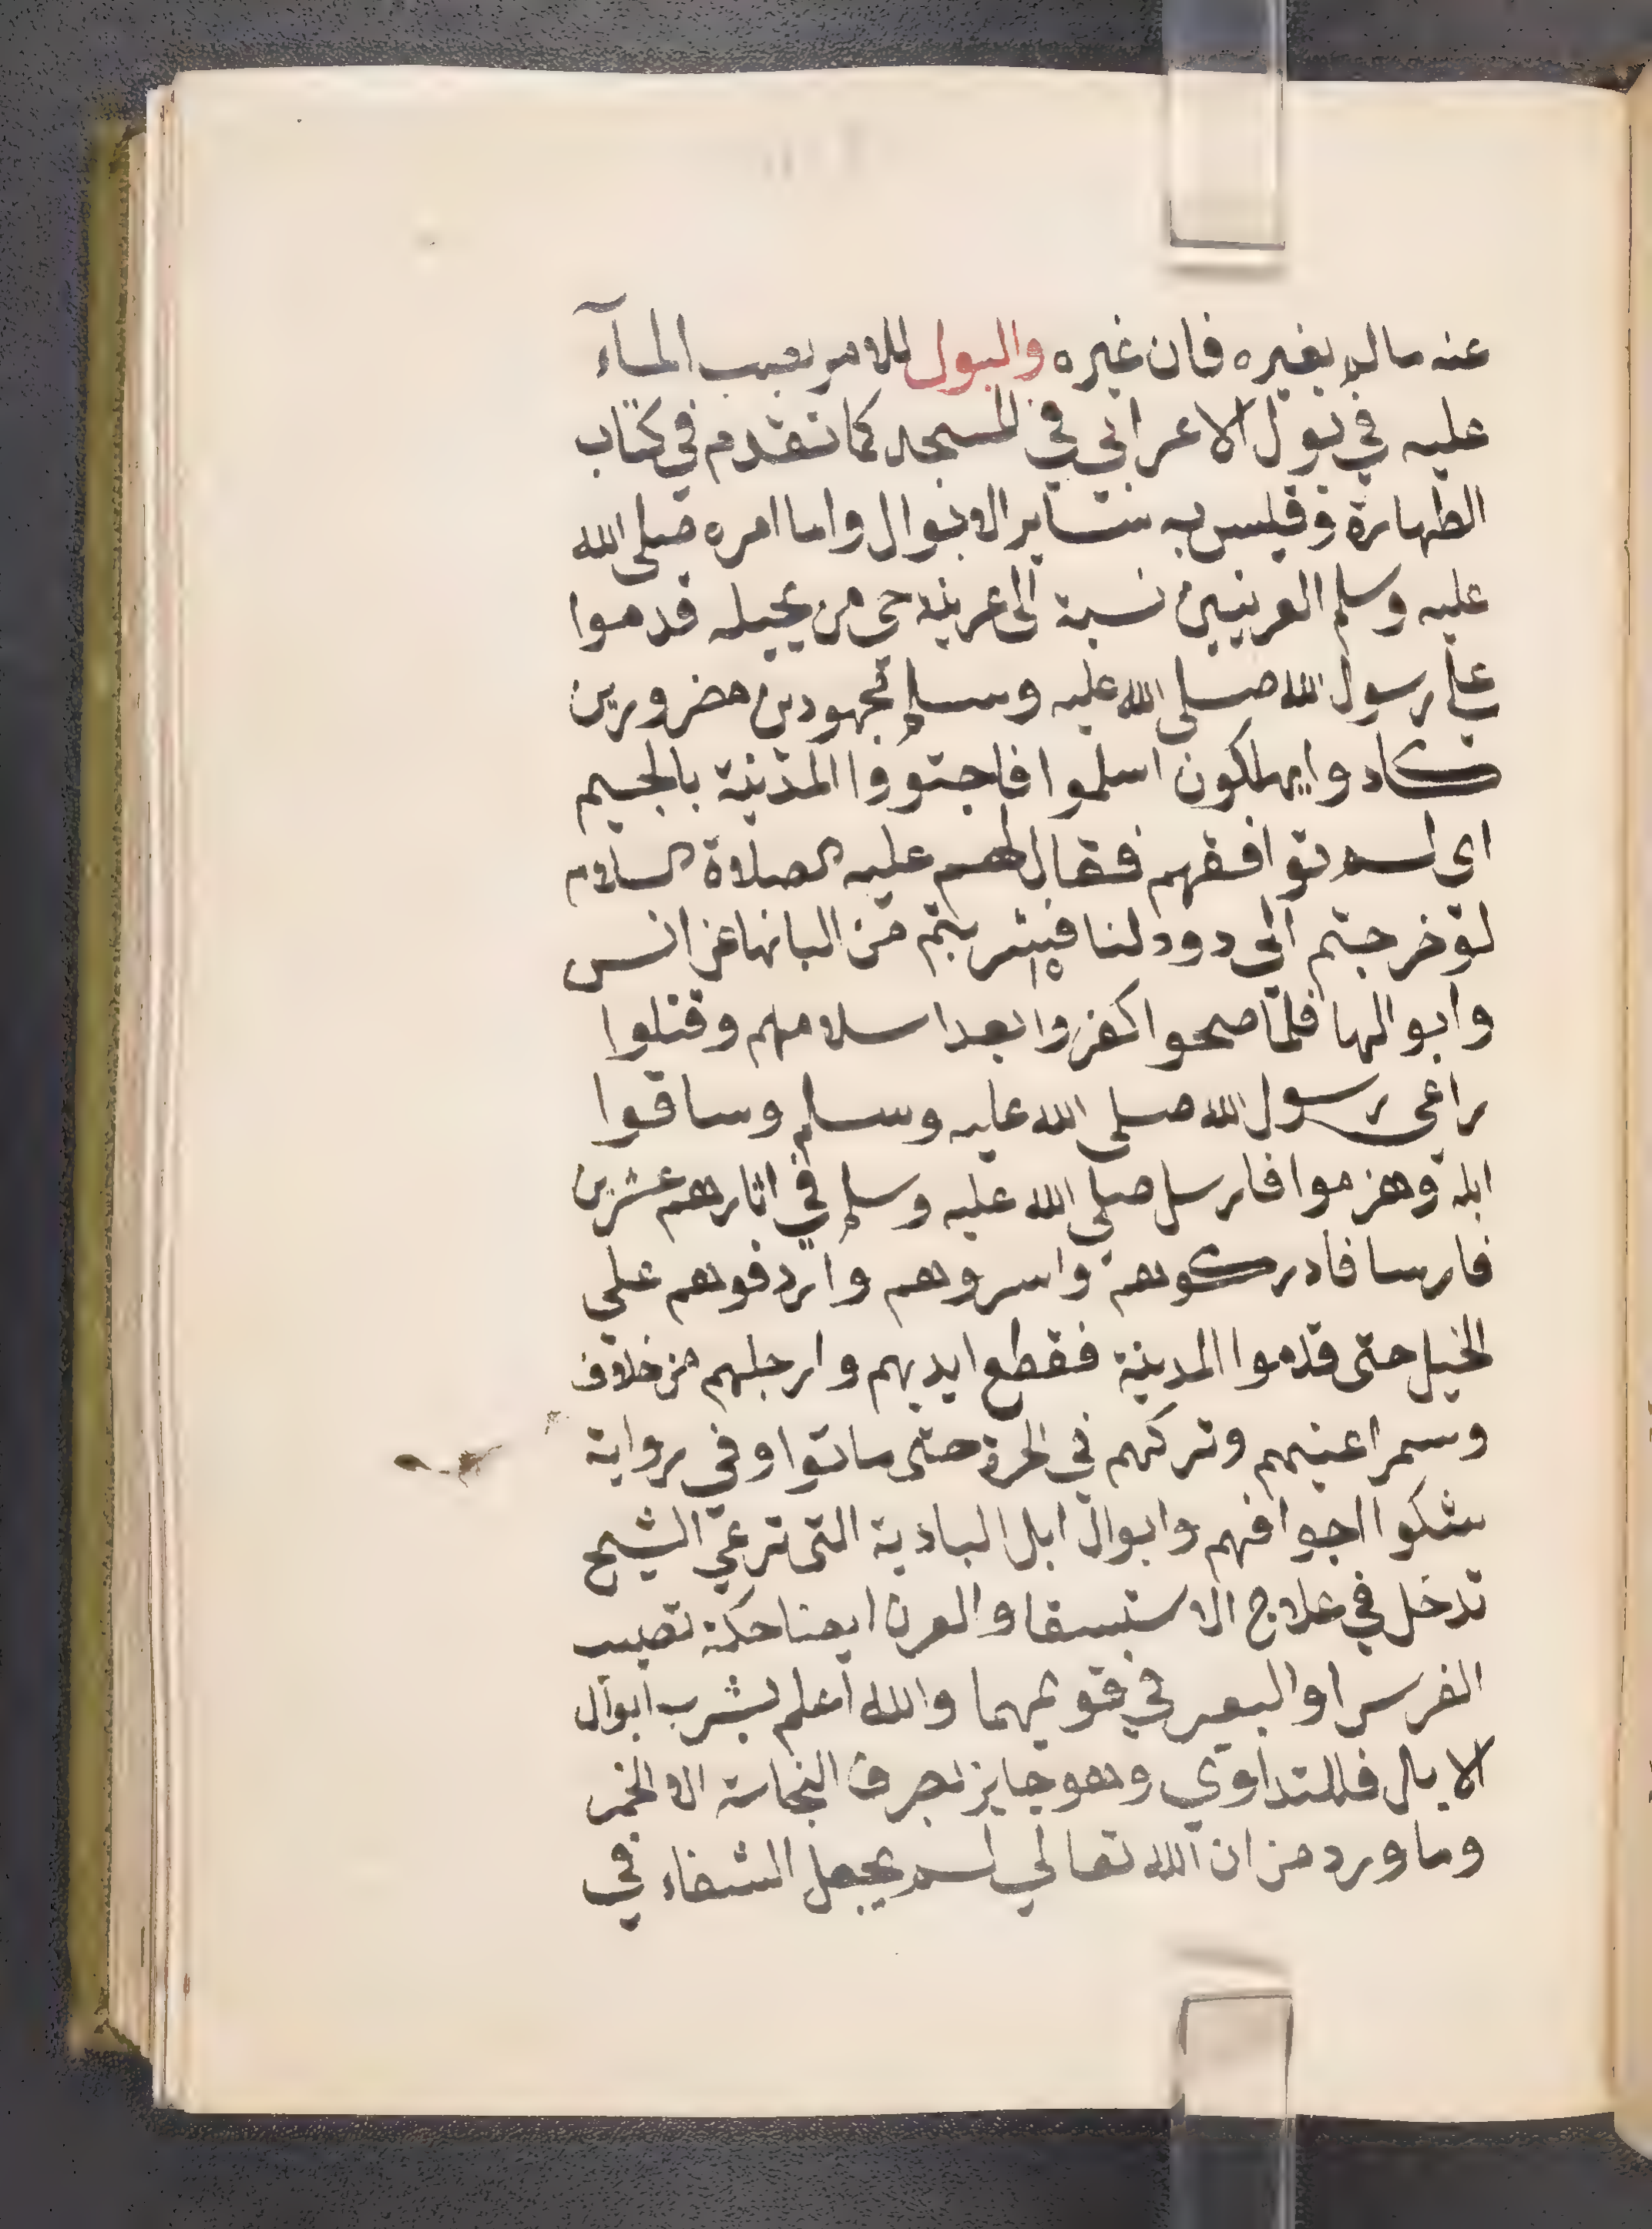 عنه مالم يغيره فان غيره والبول للامر بصب المآء
عليه في بول الاعرابي في المسجد كما تقدم في كتاب
الطهارة وقيس به سساير الابوال واما امره صلى الله
عليه وسلم العرنيين نسبة الى عرينة حى من بجيله قدموا
على رسول الله صلى الله عليه وسلم مجهودين مضرورين
كادوا يهلكون اسلموا فاجتووا المدينة بالجيم
اى لم توافقهم فقال لهم عليه الصلاة السلام
لو خرجتم الى دود لنا فشربتم من البانها عن انس
وابوالها فلما صحوا كفروا بعد اسلامهم وقتلوا
راعى رسول الله صلى الله عليه وسلم وساقوا
ابله وهزموا فارسل صلى الله عليه وسلم في اثارهم عشرين
فارسا فادركوهم واسروهم واردفوهم على
الخيل حتى قدموا المدينة فقطع ايديهم وارجلهم من خلاف
وسمر اعينهم وتركهم في الحرة حتى ماتوا وفي رواية
شكوا اجوافهم وابوال ابل البادية التى ترعى الشيح
تدخل في علاج الاستسقا والعرن ايضا حكة تصيب
الفرس او البعير في قوايمهما والله اعلم بشرب ابوال
الابل فللتداوي وهو جايز بصرف النجاسة الا الخمر
وما ورد من ان الله تعالي لم يجعل الشفاء في